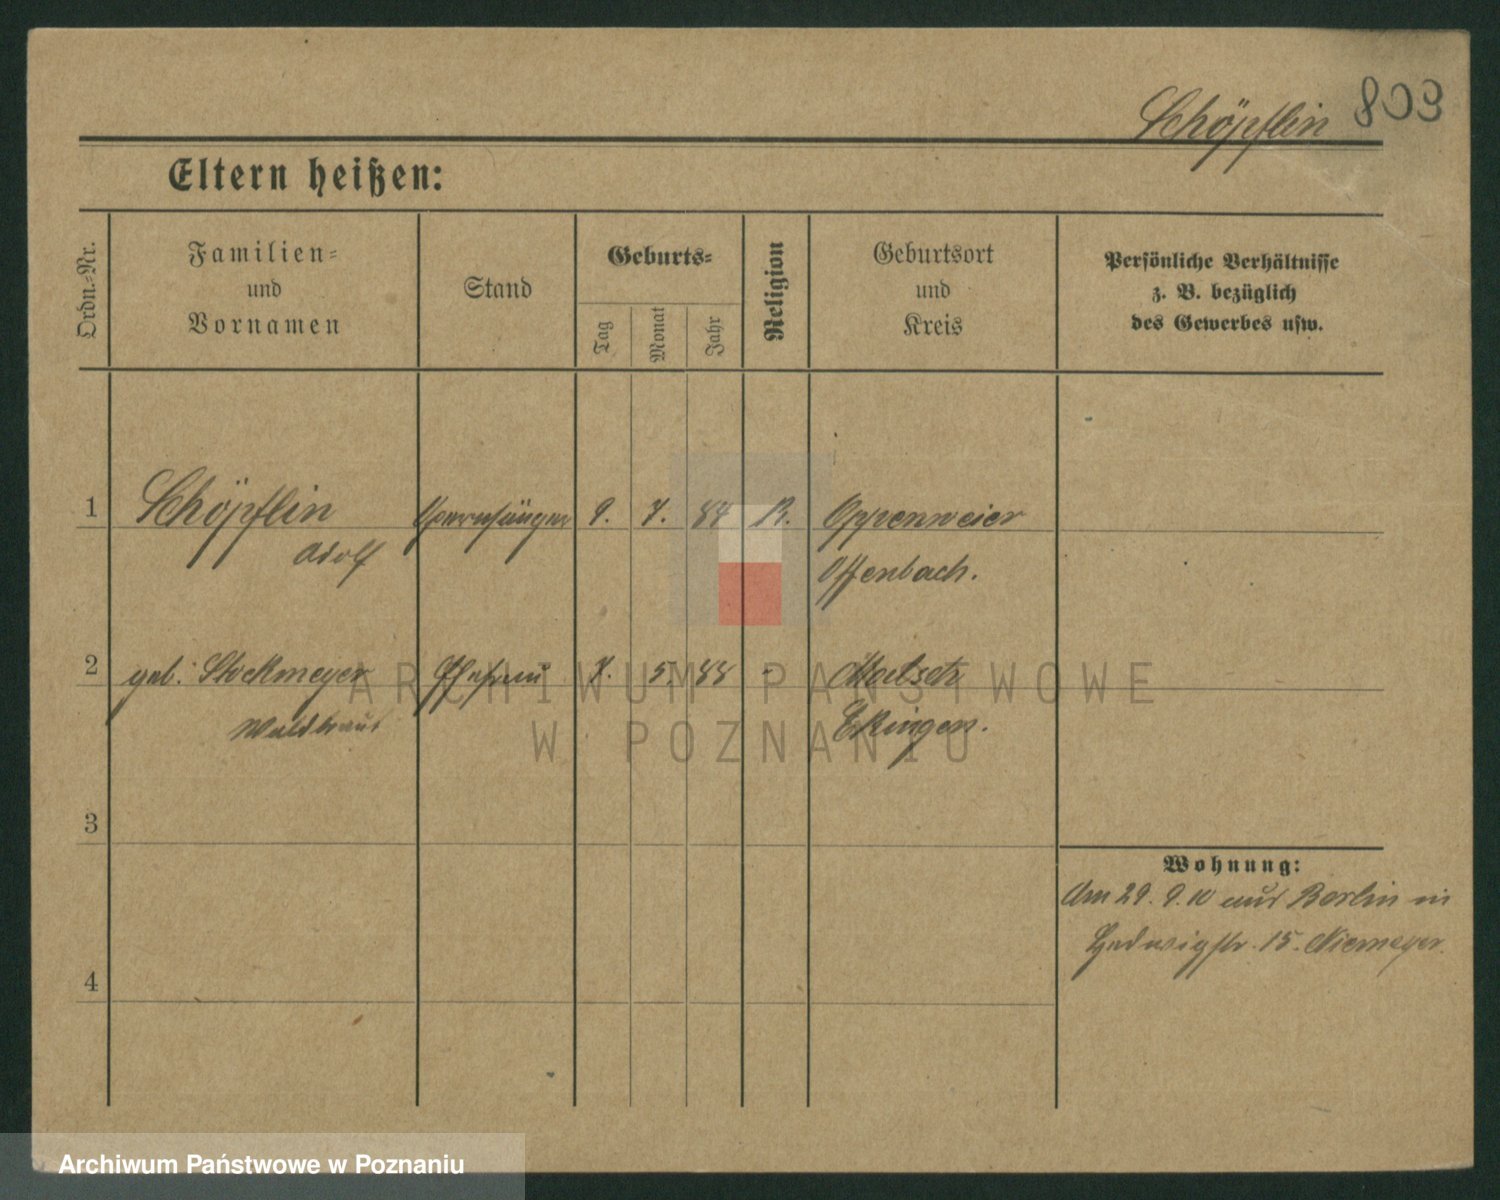 Schöpflin 803
Eltern heißen:
Ordn.-Nr.
Familien-
und
Vornamen
Stand
Geburts-
Tag
Monat
Jahr
Religion
Geburtsort
und
Kreis
Persönliche Verhältnisse
z. B. bezüglich
des Gewerbes usw.
1 Schöpflin Opernsänger 9. 7. 84 R. Oppenweier
Adolf Offenbach.
2 geb. Stockmeyer Ehefrau 7. 5. 88 - Malsch
Waldtraut Ettingen.
3
4
Wohnung:
Am 29. 9. 10 aus Berlin in
Hedwigstr. 15. Niemeyer.
ARCHIWUM PAŃSTWOWE
W POZNANIU
Archiwum Państwowe w Poznaniu